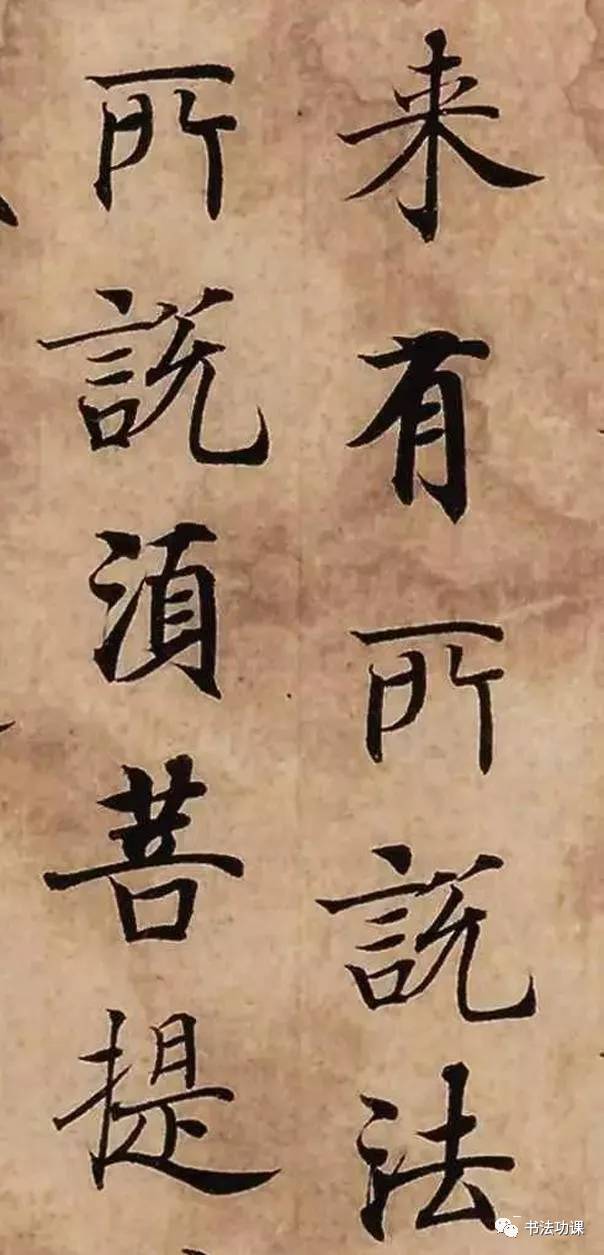 来有所説法
所説須菩提
书法功课